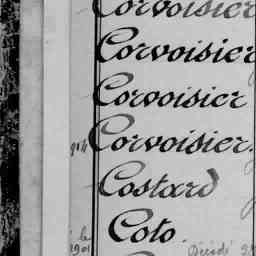 Corvoisier
Corvoisier
Corvoisier
Corvoisier.
Costard
Coto
Décédé